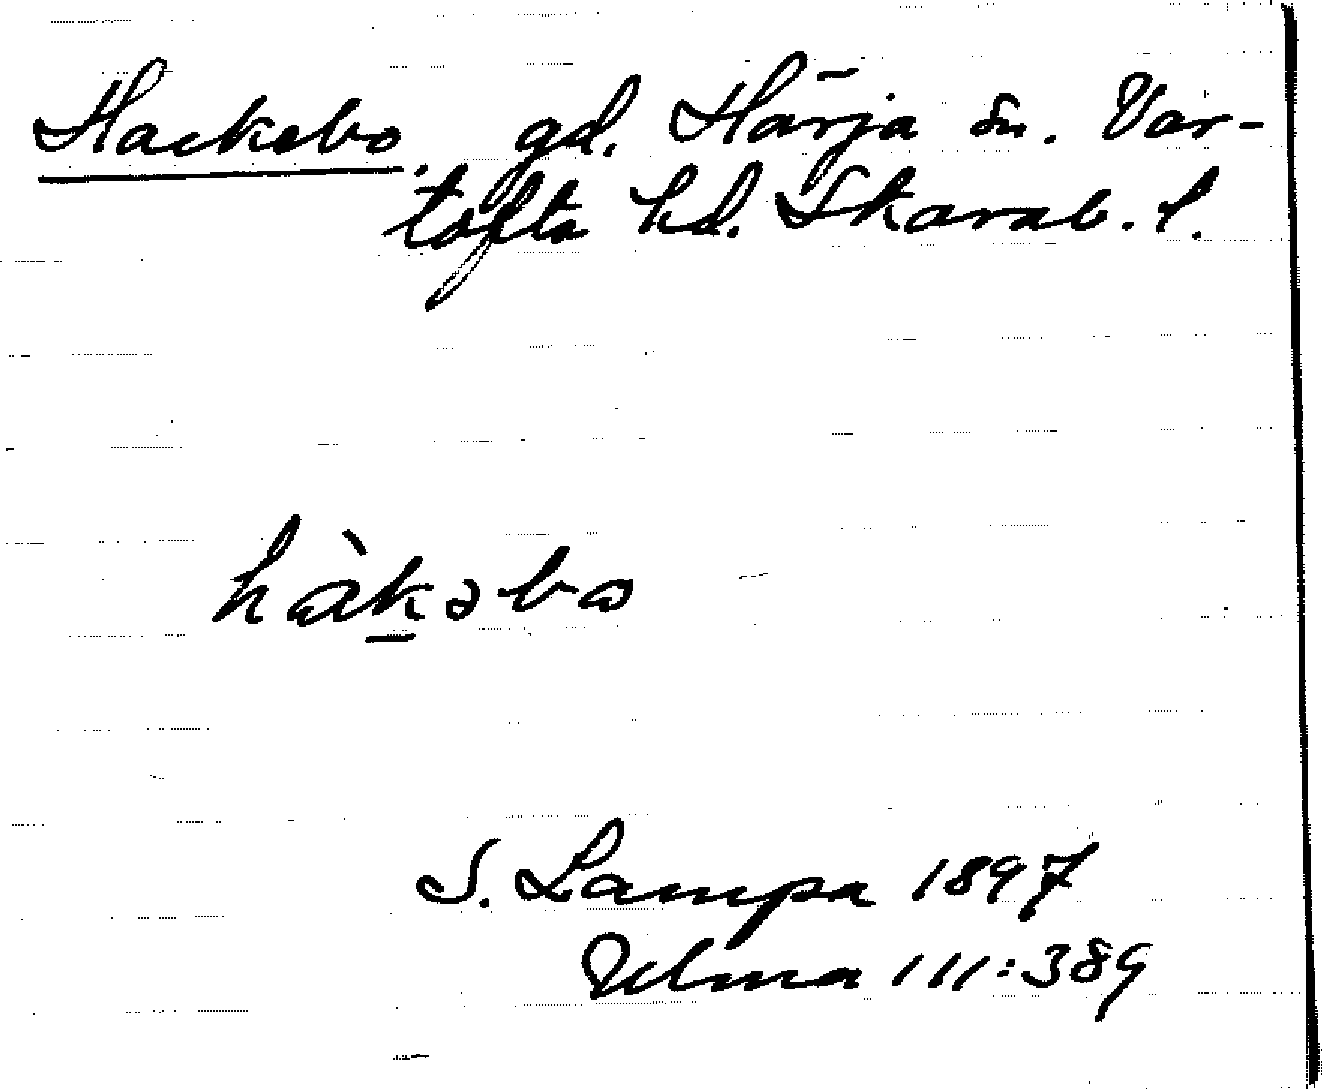 Hackebo, gd. Härja sn. Var-
tofta hd. Skarab. l.
hàk̲əbo
S. Lampa 1897
Ulma 111:389